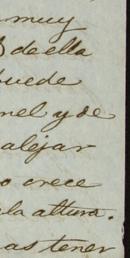 muy
de ella
puede
nel y de
alejar
o crece
la altura.
as tener